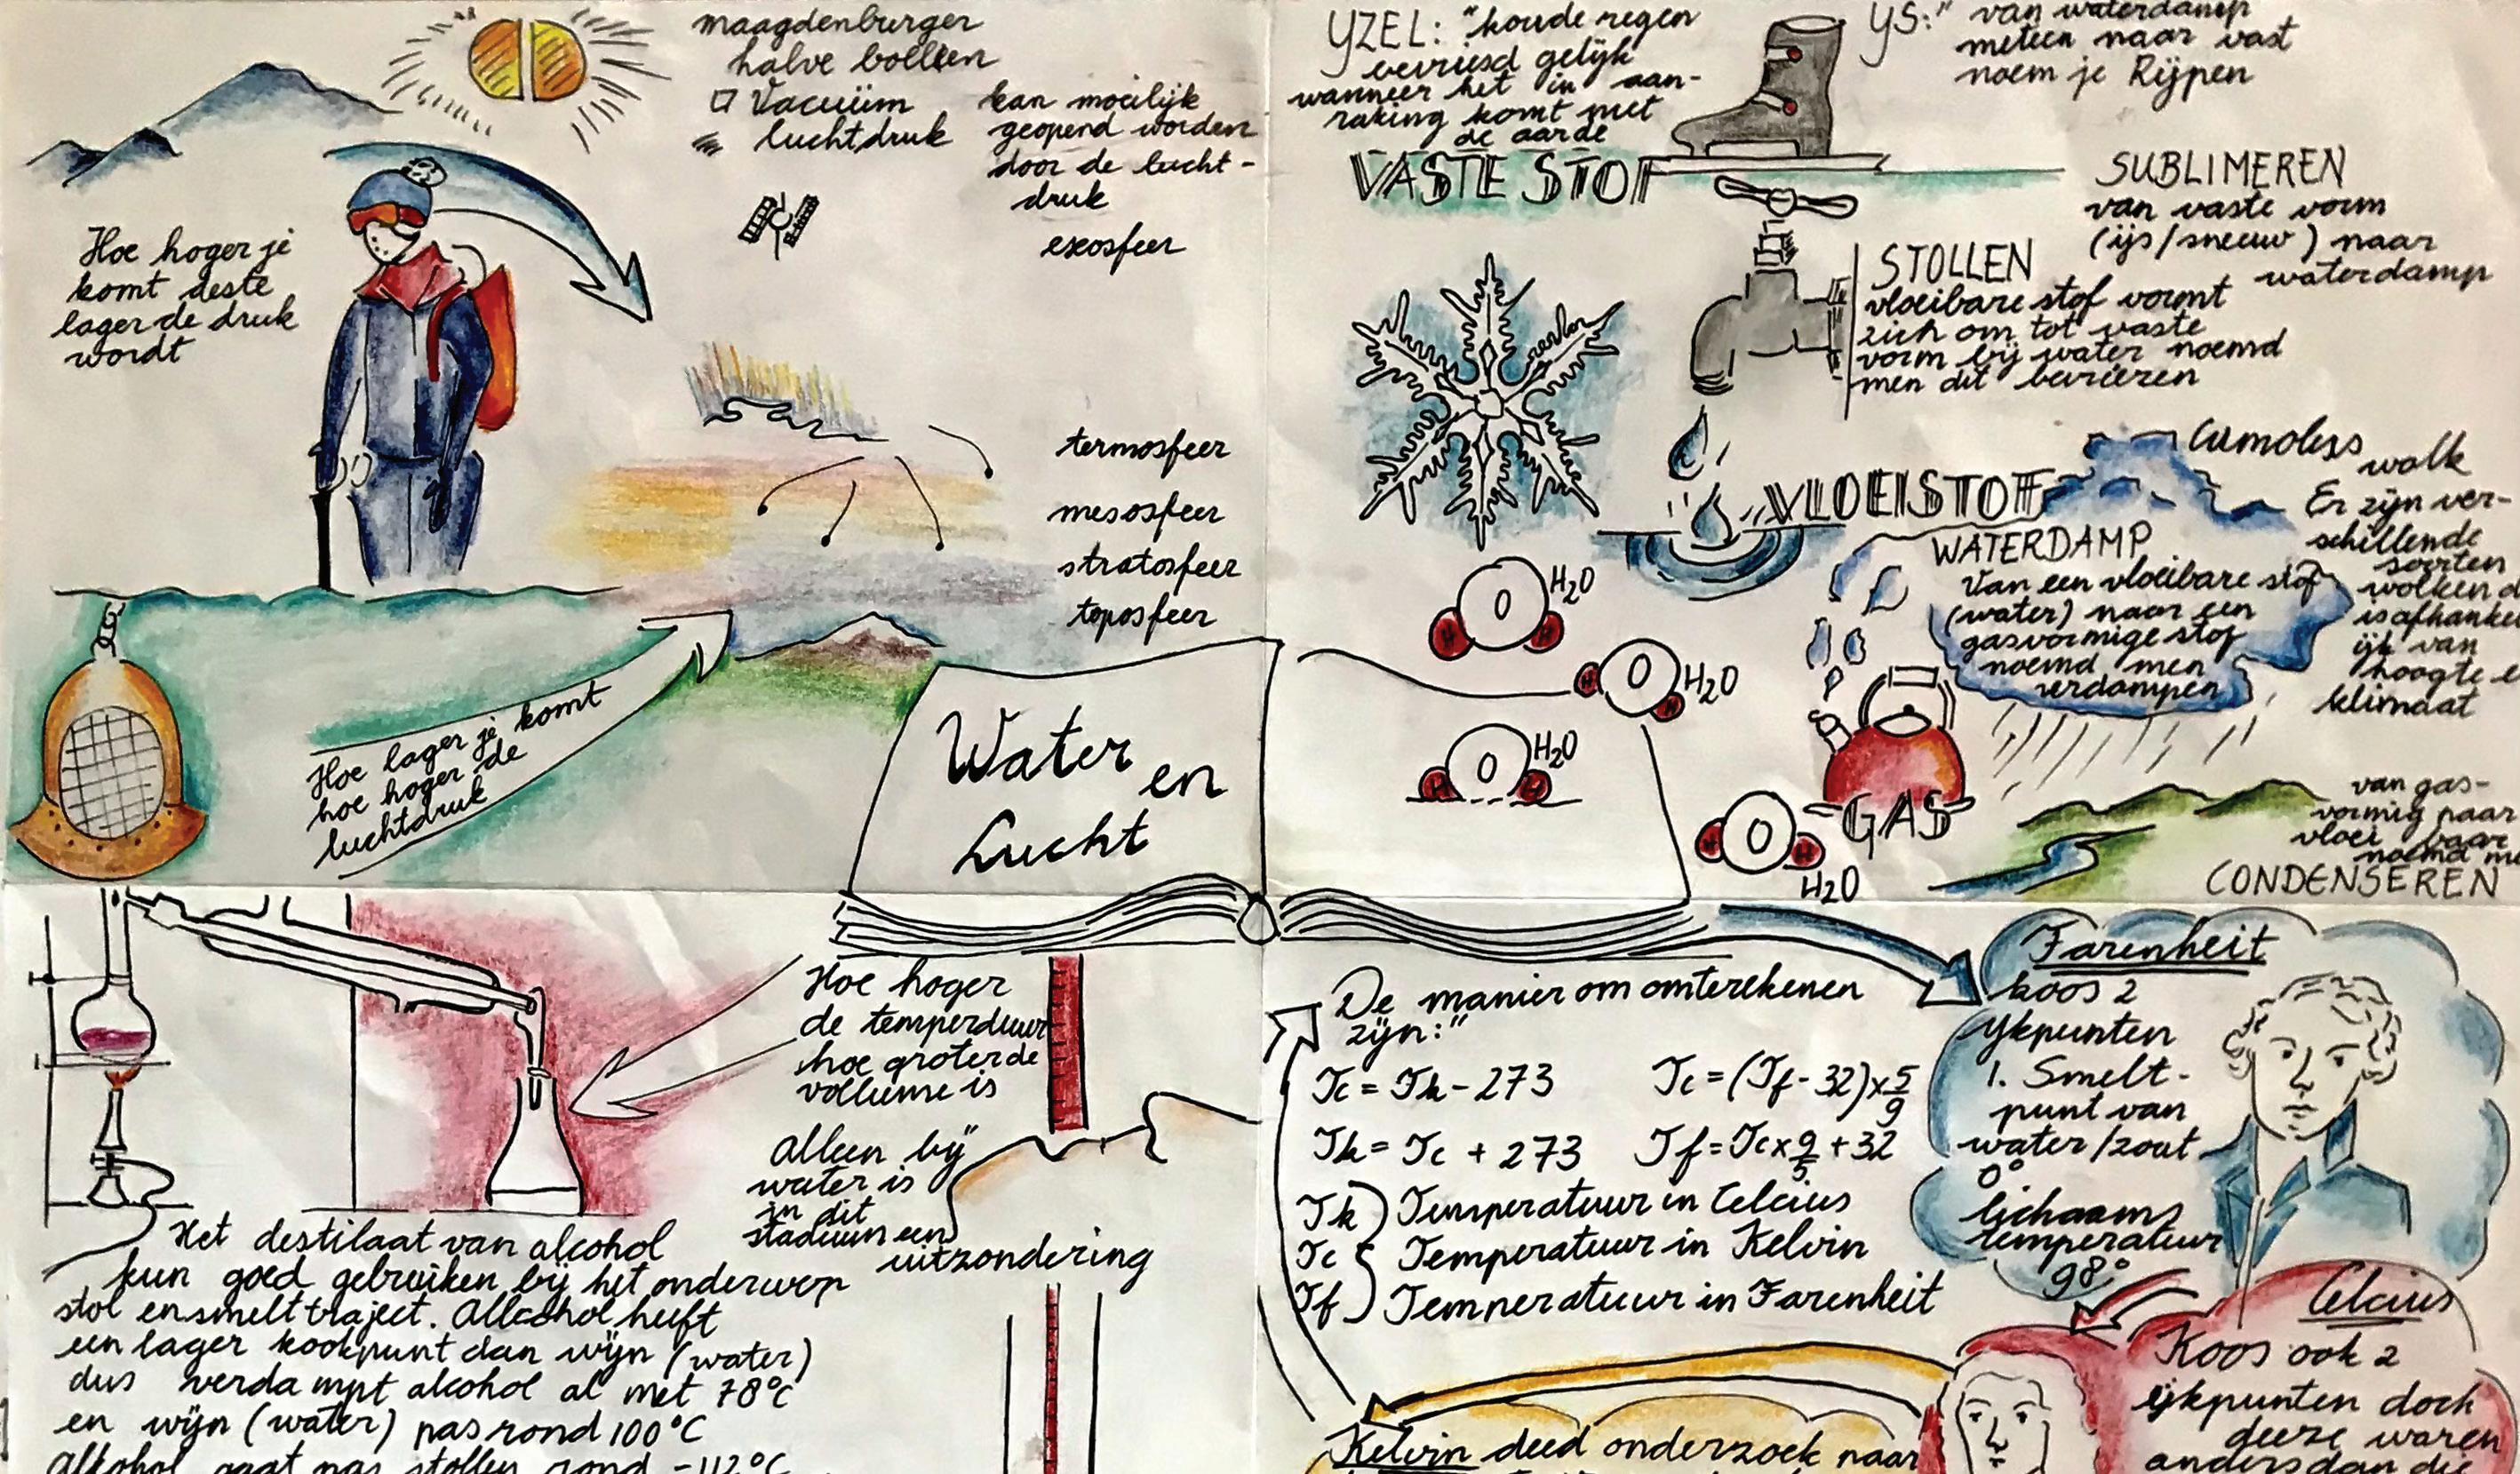 maagdenburger
halve bollen
Vacuüm
luchtdruk
kan moeilijk
geopend worden
door de lucht-
druk
exosfeer
Hoe hoger je
komt deste
lager de druk
wordt
termosfeer
mesosfeer
stratosfeer
toposfeer
Hoe lager je komt
hoe hoger de
luchtdruk
Water en
Lucht
YZEL: "koude regen
bevriesd gelijk
wanneer het in aan-
raking komt met
de aarde
YS:" van waterdamp
meteen naar vast
noem je Rijpen
VASTE STOF
SUBLIMEREN
van vaste vorm
(ijs/sneeuw) naar
waterdamp
STOLLEN
vloeibare stof vormt
zich om tot vaste
vorm bij water noemd
men dit bevriezen
VLOEISTOF
Cumolus
wolk
Er zijn ver-
schillende
soorten
wolken d
is afhankel
ijk van
hoogte e
klimaat
WATERDAMP
Van een vloeibare stof
(water) naar een
gasvormige stof
noemd men
verdampen
O H2O
H H
O H2O
H H
O H2O
H H
O
H H
H2O
GAS
van gas-
vormig naar
vloei baar
noemd me
CONDENSEREN
Hoe hoger
de temperduur
hoe groter de
vollume is
Alleen bij
water is
in dit
stadium een
uitzondering
Het destilaat van alcohol
kun goed gebruiken bij het onderwerp
stol en smelt traject. Allcohol heeft
een lager kookpunt dan wijn (water)
dus verdampt alcohol al met 78°C
en wijn (water) pas rond 100°C
alkohol gaat pas stollen rond -112°C
De manier om omterekenen
zijn:"
Tc = Tk - 273
Tc = (Tf - 32) x 5/9
Tk = Tc + 273
Tf = Tc x 9/5 + 32
Tk) Temperatuur in Celcius
Tc Temperatuur in Kelvin
Tf) Temperatuur in Farenheit
Farenheit
koos 2
ykpunten
1. Smelt-
punt van
water/zout
0°
lichaams
temperatuur
98°
Celcius
Koos ook 2
ijkpunten doch
deeze waren
anders dan die
Kelvin deed onderzoek naar